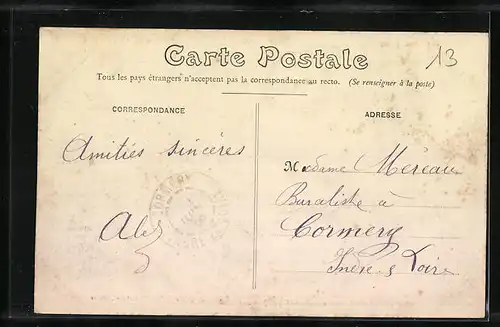 Carte Postale
13
Tous les pays étrangers n'acceptent pas la correspondance au recto. (Se renseigner à la poste)
CORRESPONDANCE
ADRESSE
Amitiés sincères
Madame Méreau
Buraliste à
Cormery
Indre & Loire